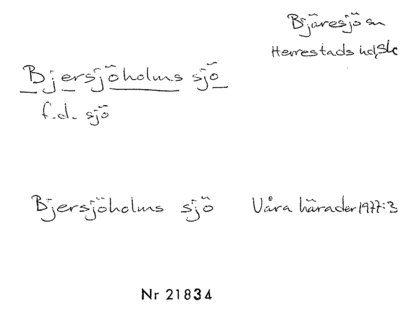 Bjäresjö sn
Herrestads hd, Sk
Bjersjöholms sjö
f.d. sjö
Bjersjöholms sjö Våra härader 1977:3
Nr 21834